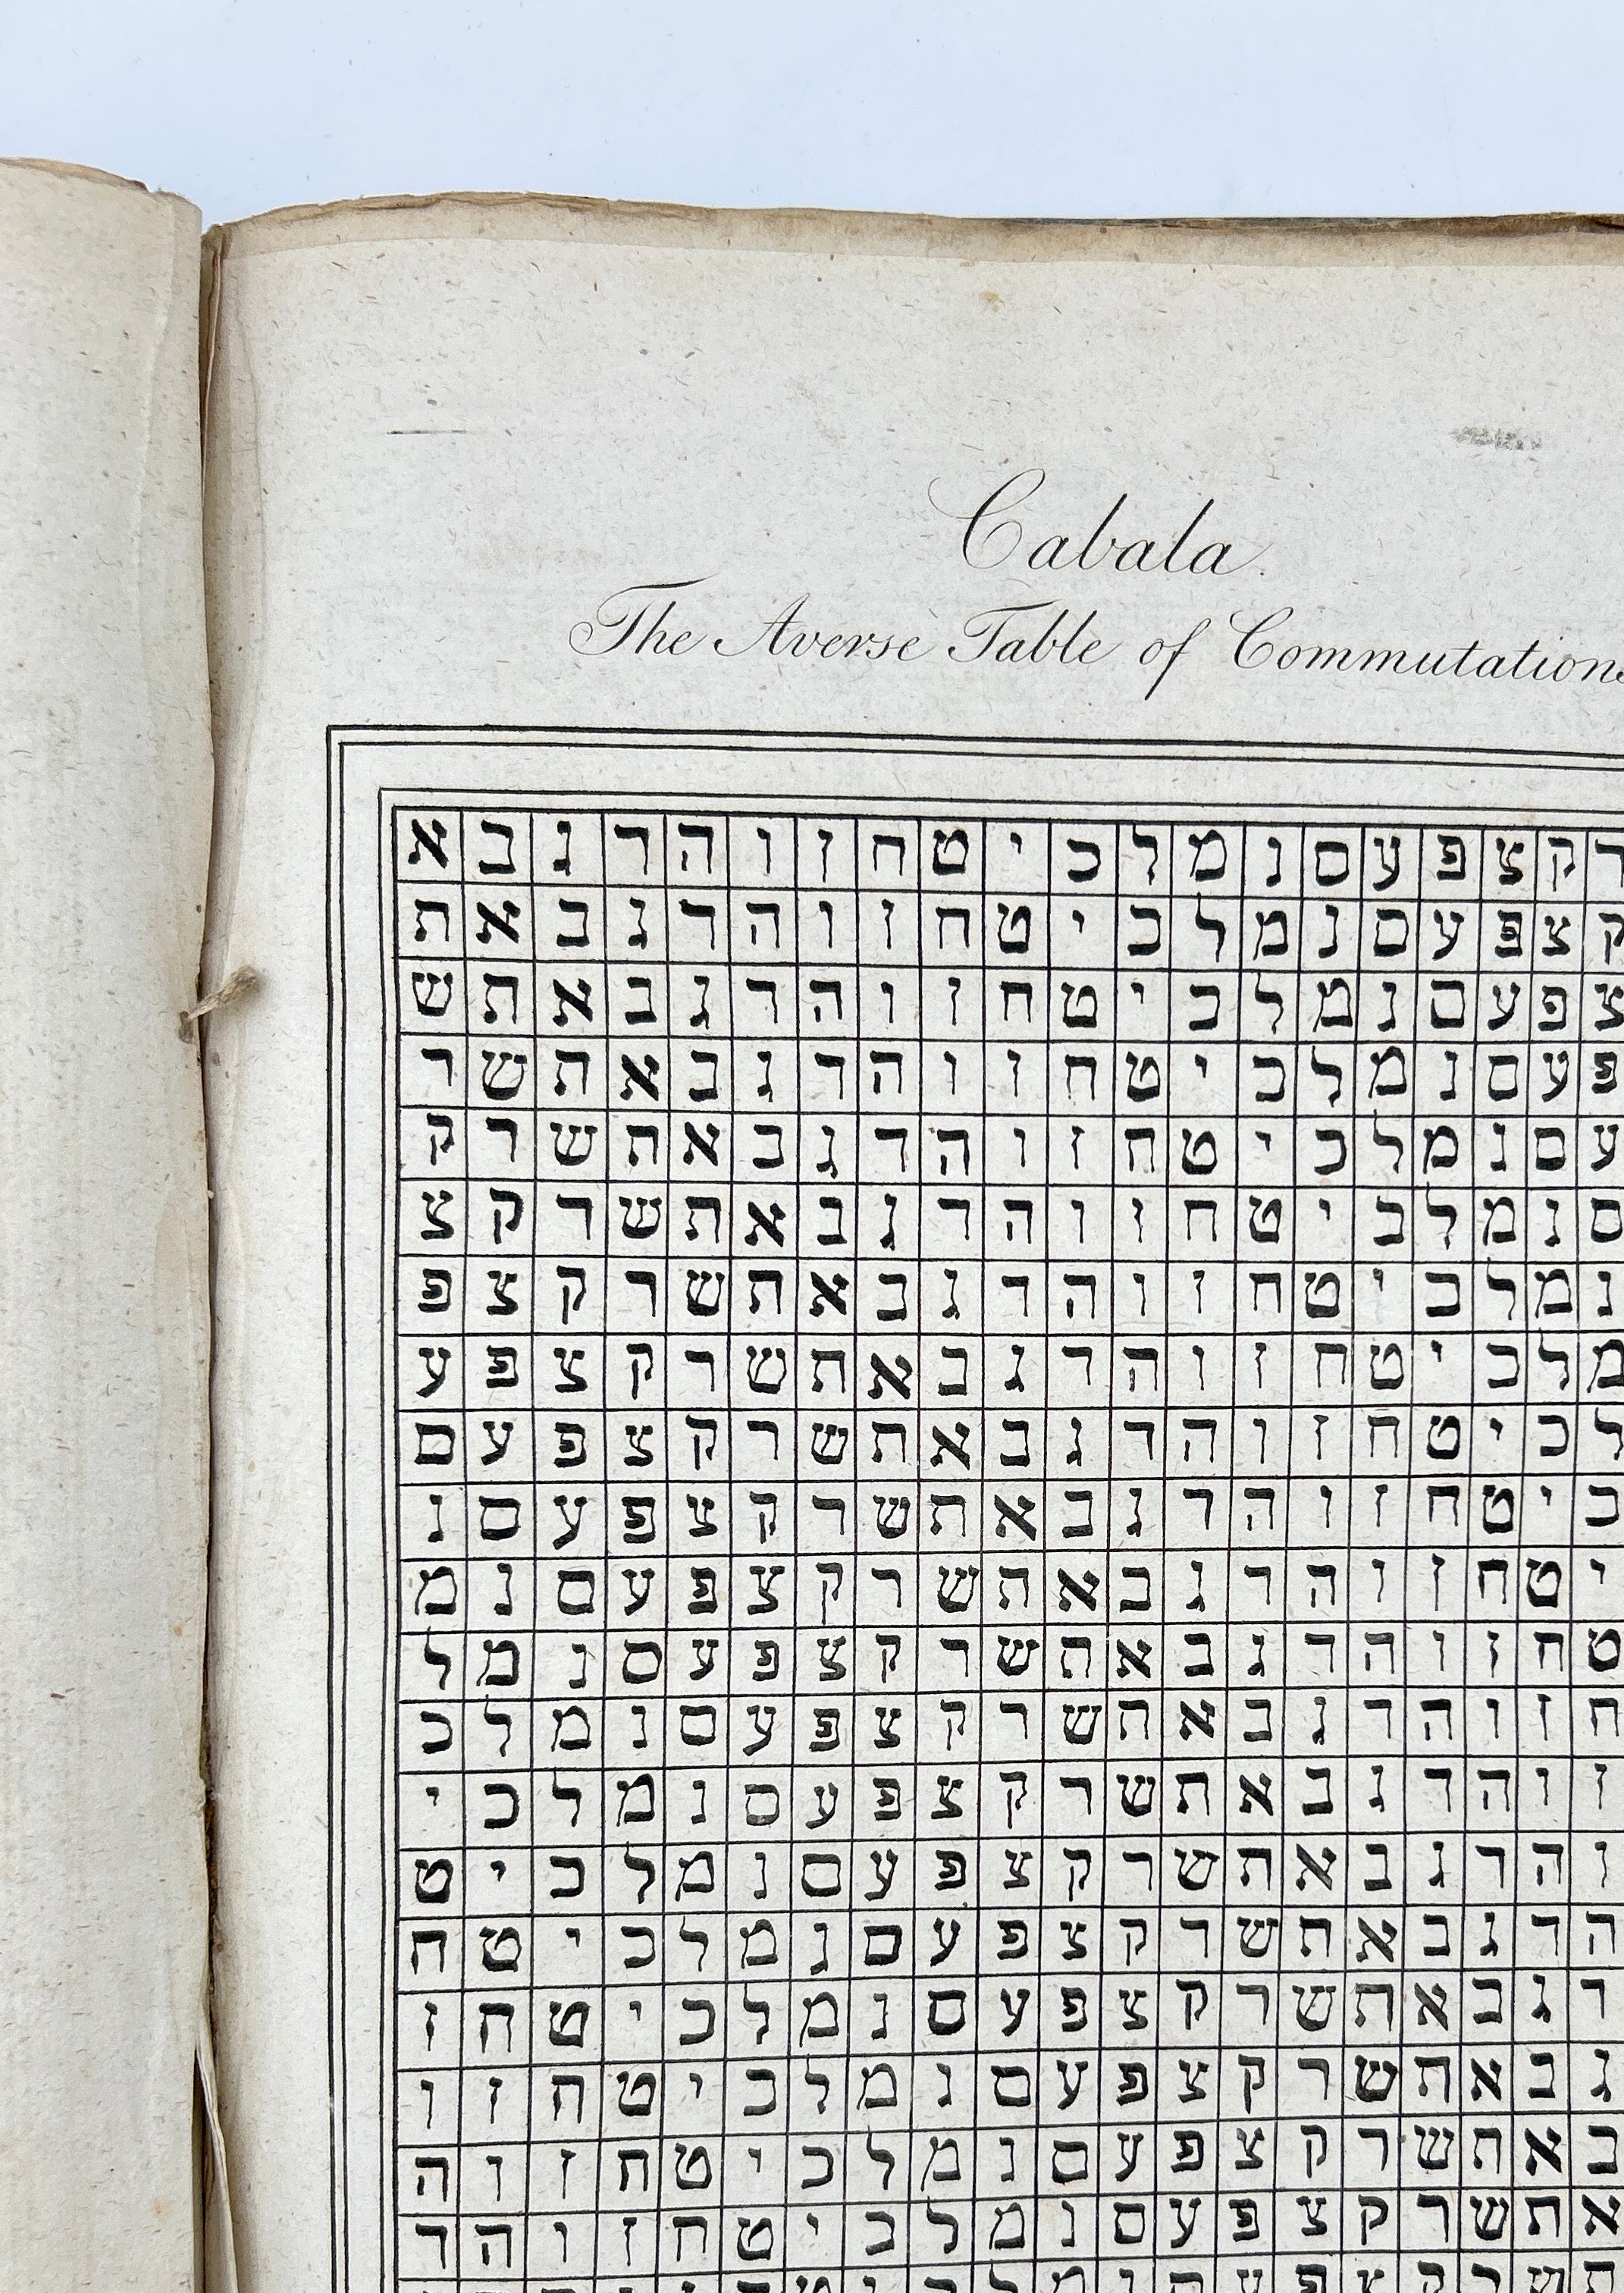 Cabala.
The Averse Table of Commutations
ר ק צ פ ע ס נ מ ל כ י ט ח ז ו ה ד ג ב א
ק צ פ ע ס נ מ ל כ י ט ח ז ו ה ד ג ב א ת
צ פ ע ס נ מ ל כ י ט ח ז ו ה ד ג ב א ת ש
פ ע ס נ מ ל כ י ט ח ז ו ה ד ג ב א ת ש ר
ע ס נ מ ל כ י ט ח ז ו ה ד ג ב א ת ש ר ק
ס נ מ ל כ י ט ח ז ו ה ד ג ב א ת ש ר ק צ
נ מ ל כ י ט ח ז ו ה ד ג ב א ת ש ר ק צ פ
מ ל כ י ט ח ז ו ה ד ג ב א ת ש ר ק צ פ ע
ל כ י ט ח ז ו ה ד ג ב א ת ש ר ק צ פ ע ס
כ י ט ח ז ו ה ד ג ב א ת ש ר ק צ פ ע ס נ
י ט ח ז ו ה ד ג ב א ת ש ר ק צ פ ע ס נ מ
ט ח ז ו ה ד ג ב א ת ש ר ק צ פ ע ס נ מ ל
ח ז ו ה ד ג ב א ת ש ר ק צ פ ע ס נ מ ל כ
ז ו ה ד ג ב א ת ש ר ק צ פ ע ס נ מ ל כ י
ו ה ד ג ב א ת ש ר ק צ פ ע ס נ מ ל כ י ט
ה ד ג ב א ת ש ר ק צ פ ע ס נ מ ל כ י ט ח
ד ג ב א ת ש ר ק צ פ ע ס נ מ ל כ י ט ח ז
ג ב א ת ש ר ק צ פ ע ס נ מ ל כ י ט ח ז ו
ב א ת ש ר ק צ פ ע ס נ מ ל כ י ט ח ז ו ה
א ת ש ר ק צ פ ע ס נ מ ל כ י ט ח ז ו ה ד